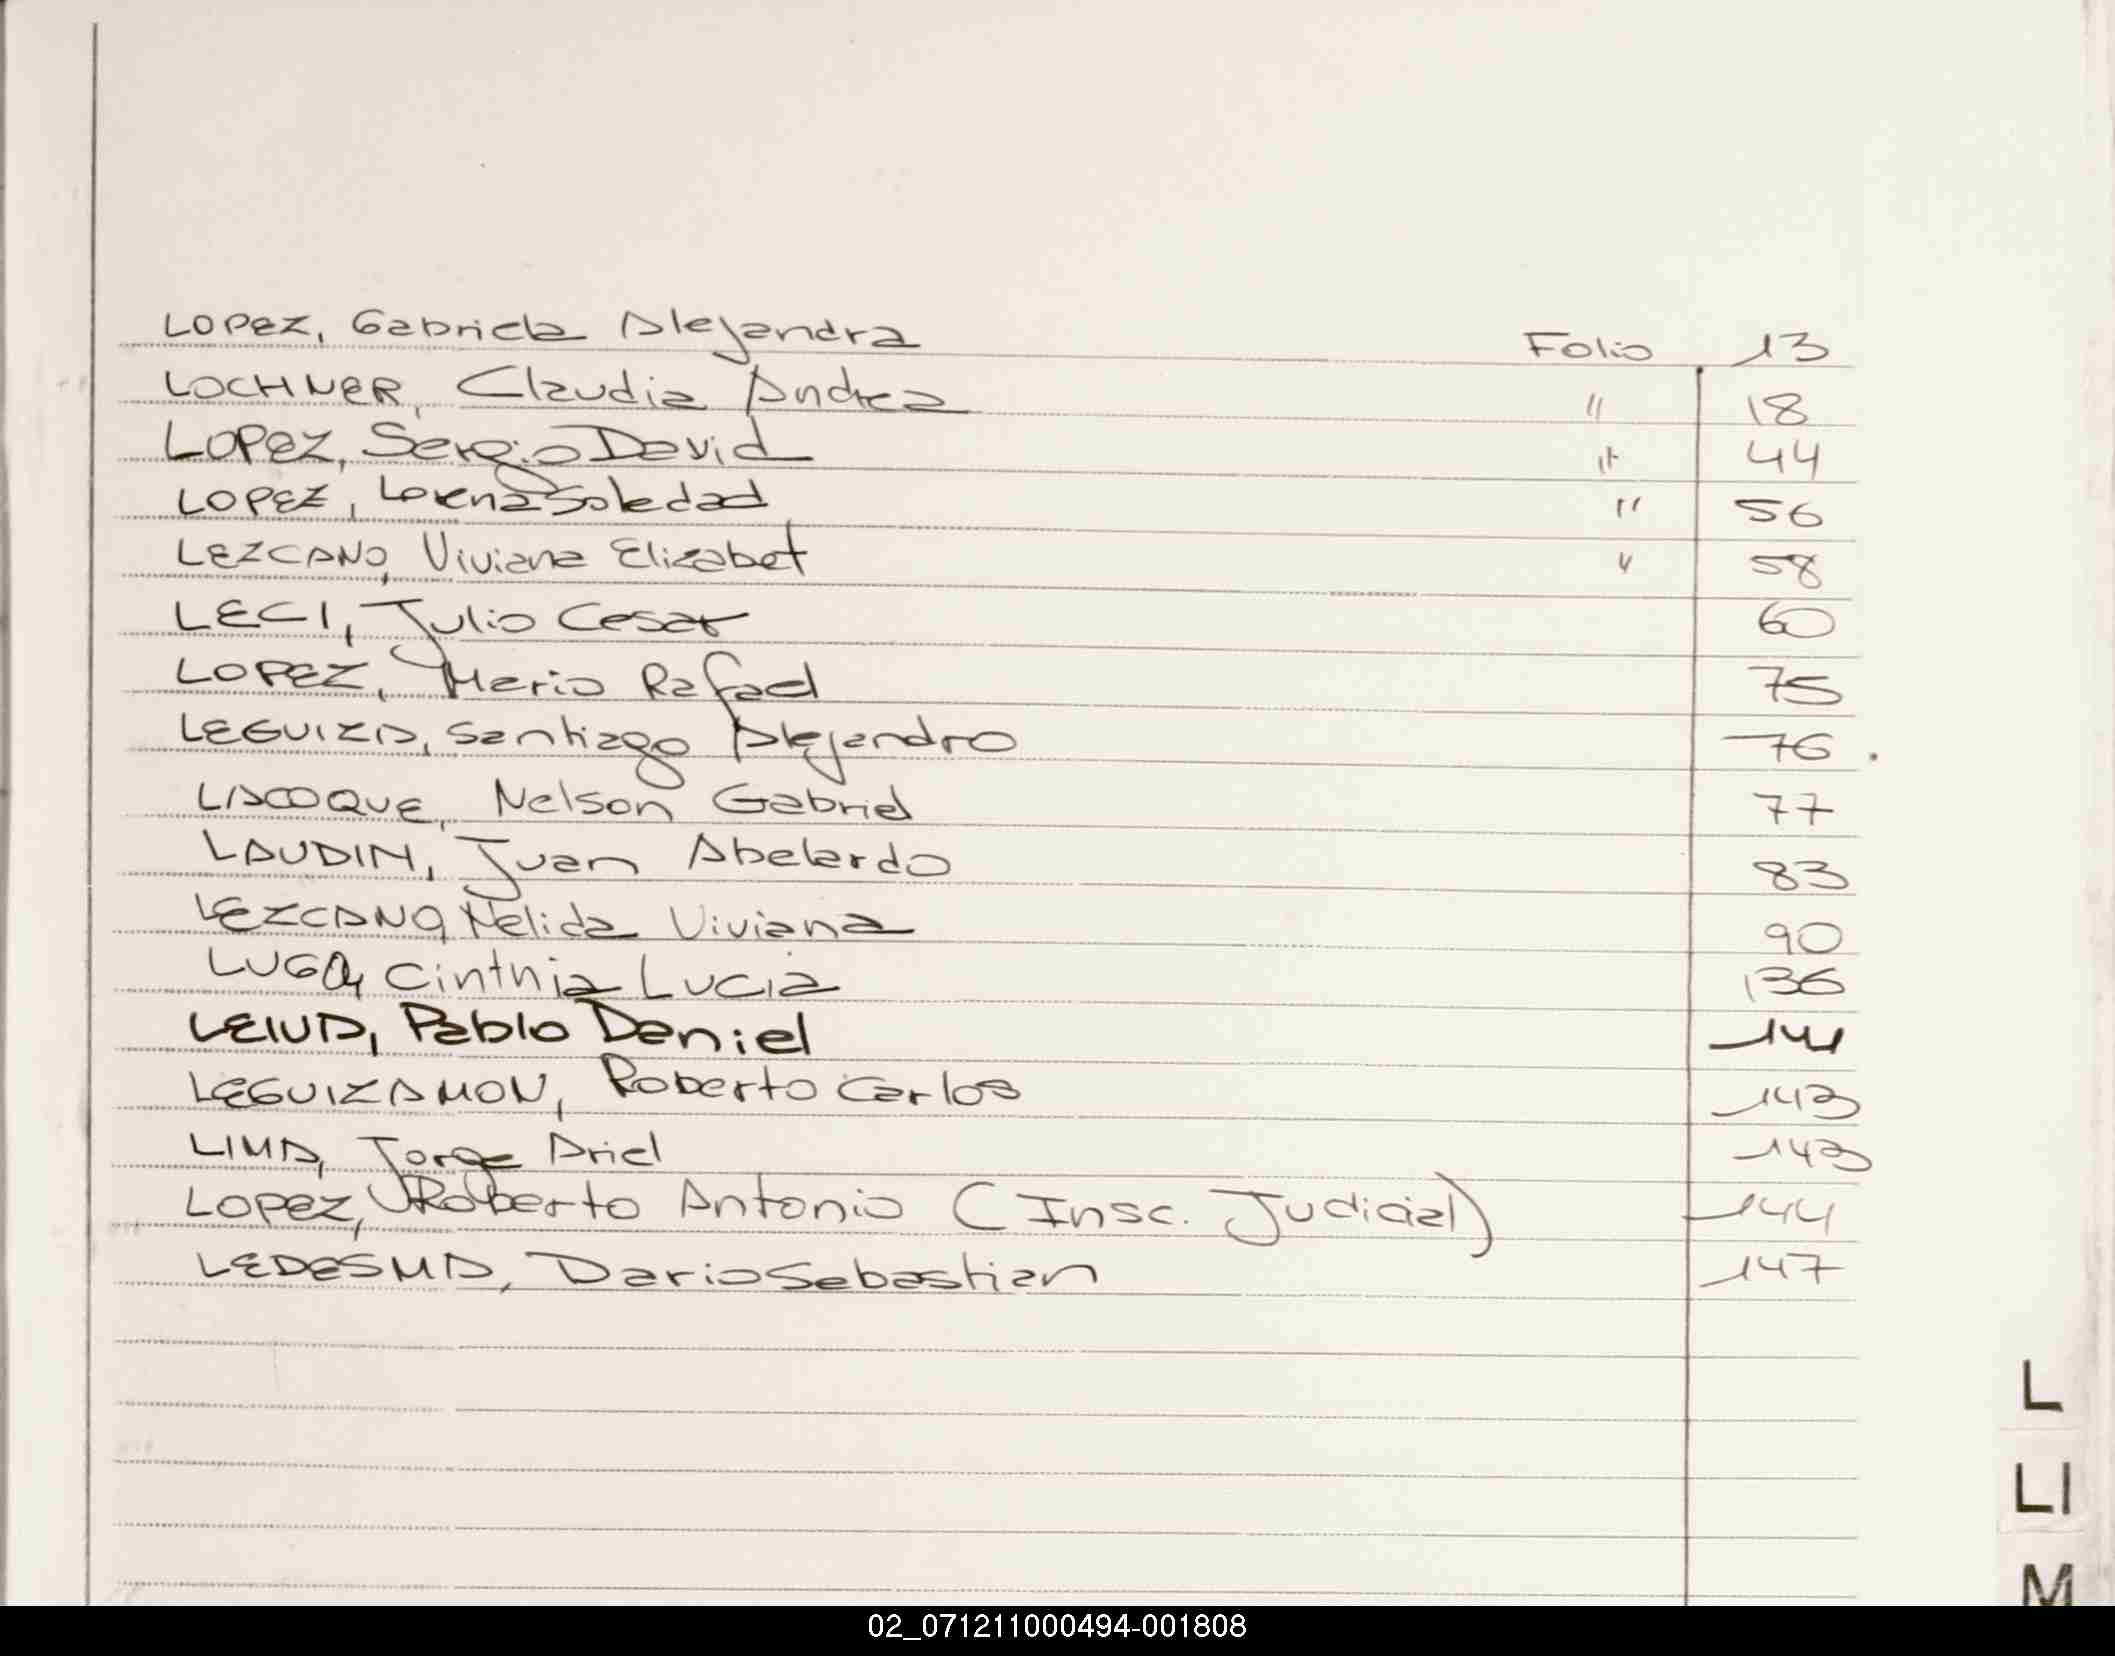 LOPEZ, Gabriela Alejandra Folio 13
LOCHNER, Claudia Andrea " 18
LOPEZ, Sergio David " 44
LOPEZ, Lorena Soledad " 56
LEZCANO, Viviana Elizabet " 58
LECI, Julio Cesar 60
LOPEZ, Mario Rafael 75
LEGUIZA, Santiago Alejandro 76
LACOQUE, Nelson Gabriel 77
LAUDIN, Juan Abelardo 83
LEZCANO, Nelida Viviana 90
LUGO, Cinthia Lucia 136
LEIVA, Pablo Daniel 141
LEGUIZAMON, Roberto Carlos 143
LIMA, Jorge Ariel 143
LOPEZ, Roberto Antonio (Insc. Judicial) 144
LEDESMA, Dario Sebastian 147
L
LI
M
02_071211000494-001808